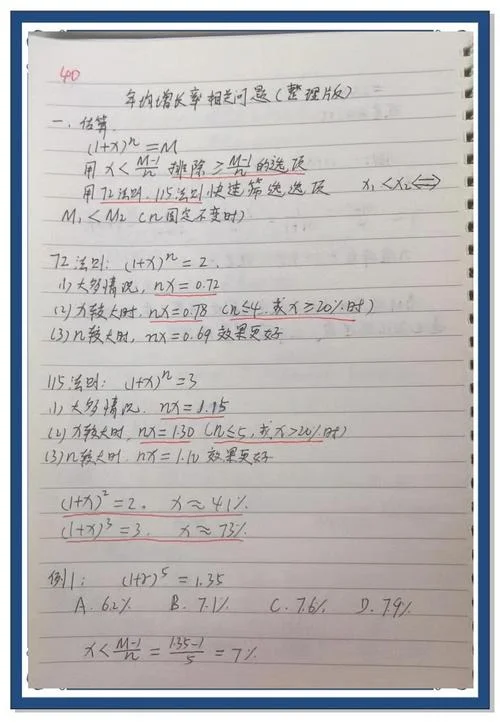 40
年均增长率相关问题(整理版)
一、估算.
(1+x)ⁿ=M
用 x<(M-1)/n 排除 ≥(M-1)/n 的选项
用72法则.115法则快速筛选选项 x₁<x₂⇔
M₁<M₂ (n固定不变时)
72法则: (1+x)ⁿ=2.
(1)大多情况, nx=0.72
(2)x较大时, nx=0.78 (n≤4,或x≥20%时)
(3)n较大时, nx=0.69 效果更好
115法则: (1+x)ⁿ=3
(1)大多情况. nx=1.15
(2)x较大时, nx=1.30 (n≤5,或x>20%时)
(3)n较大时. nx=1.10 效果更好
(1+x)²=2. x≈41%.
(1+x)³=3. x≈73%.
例1: (1+r)⁵=1.35
A. 6.2% B. 7.1% C. 7.6% D. 7.9%
x<(M-1)/n=(1.35-1)/5=7%